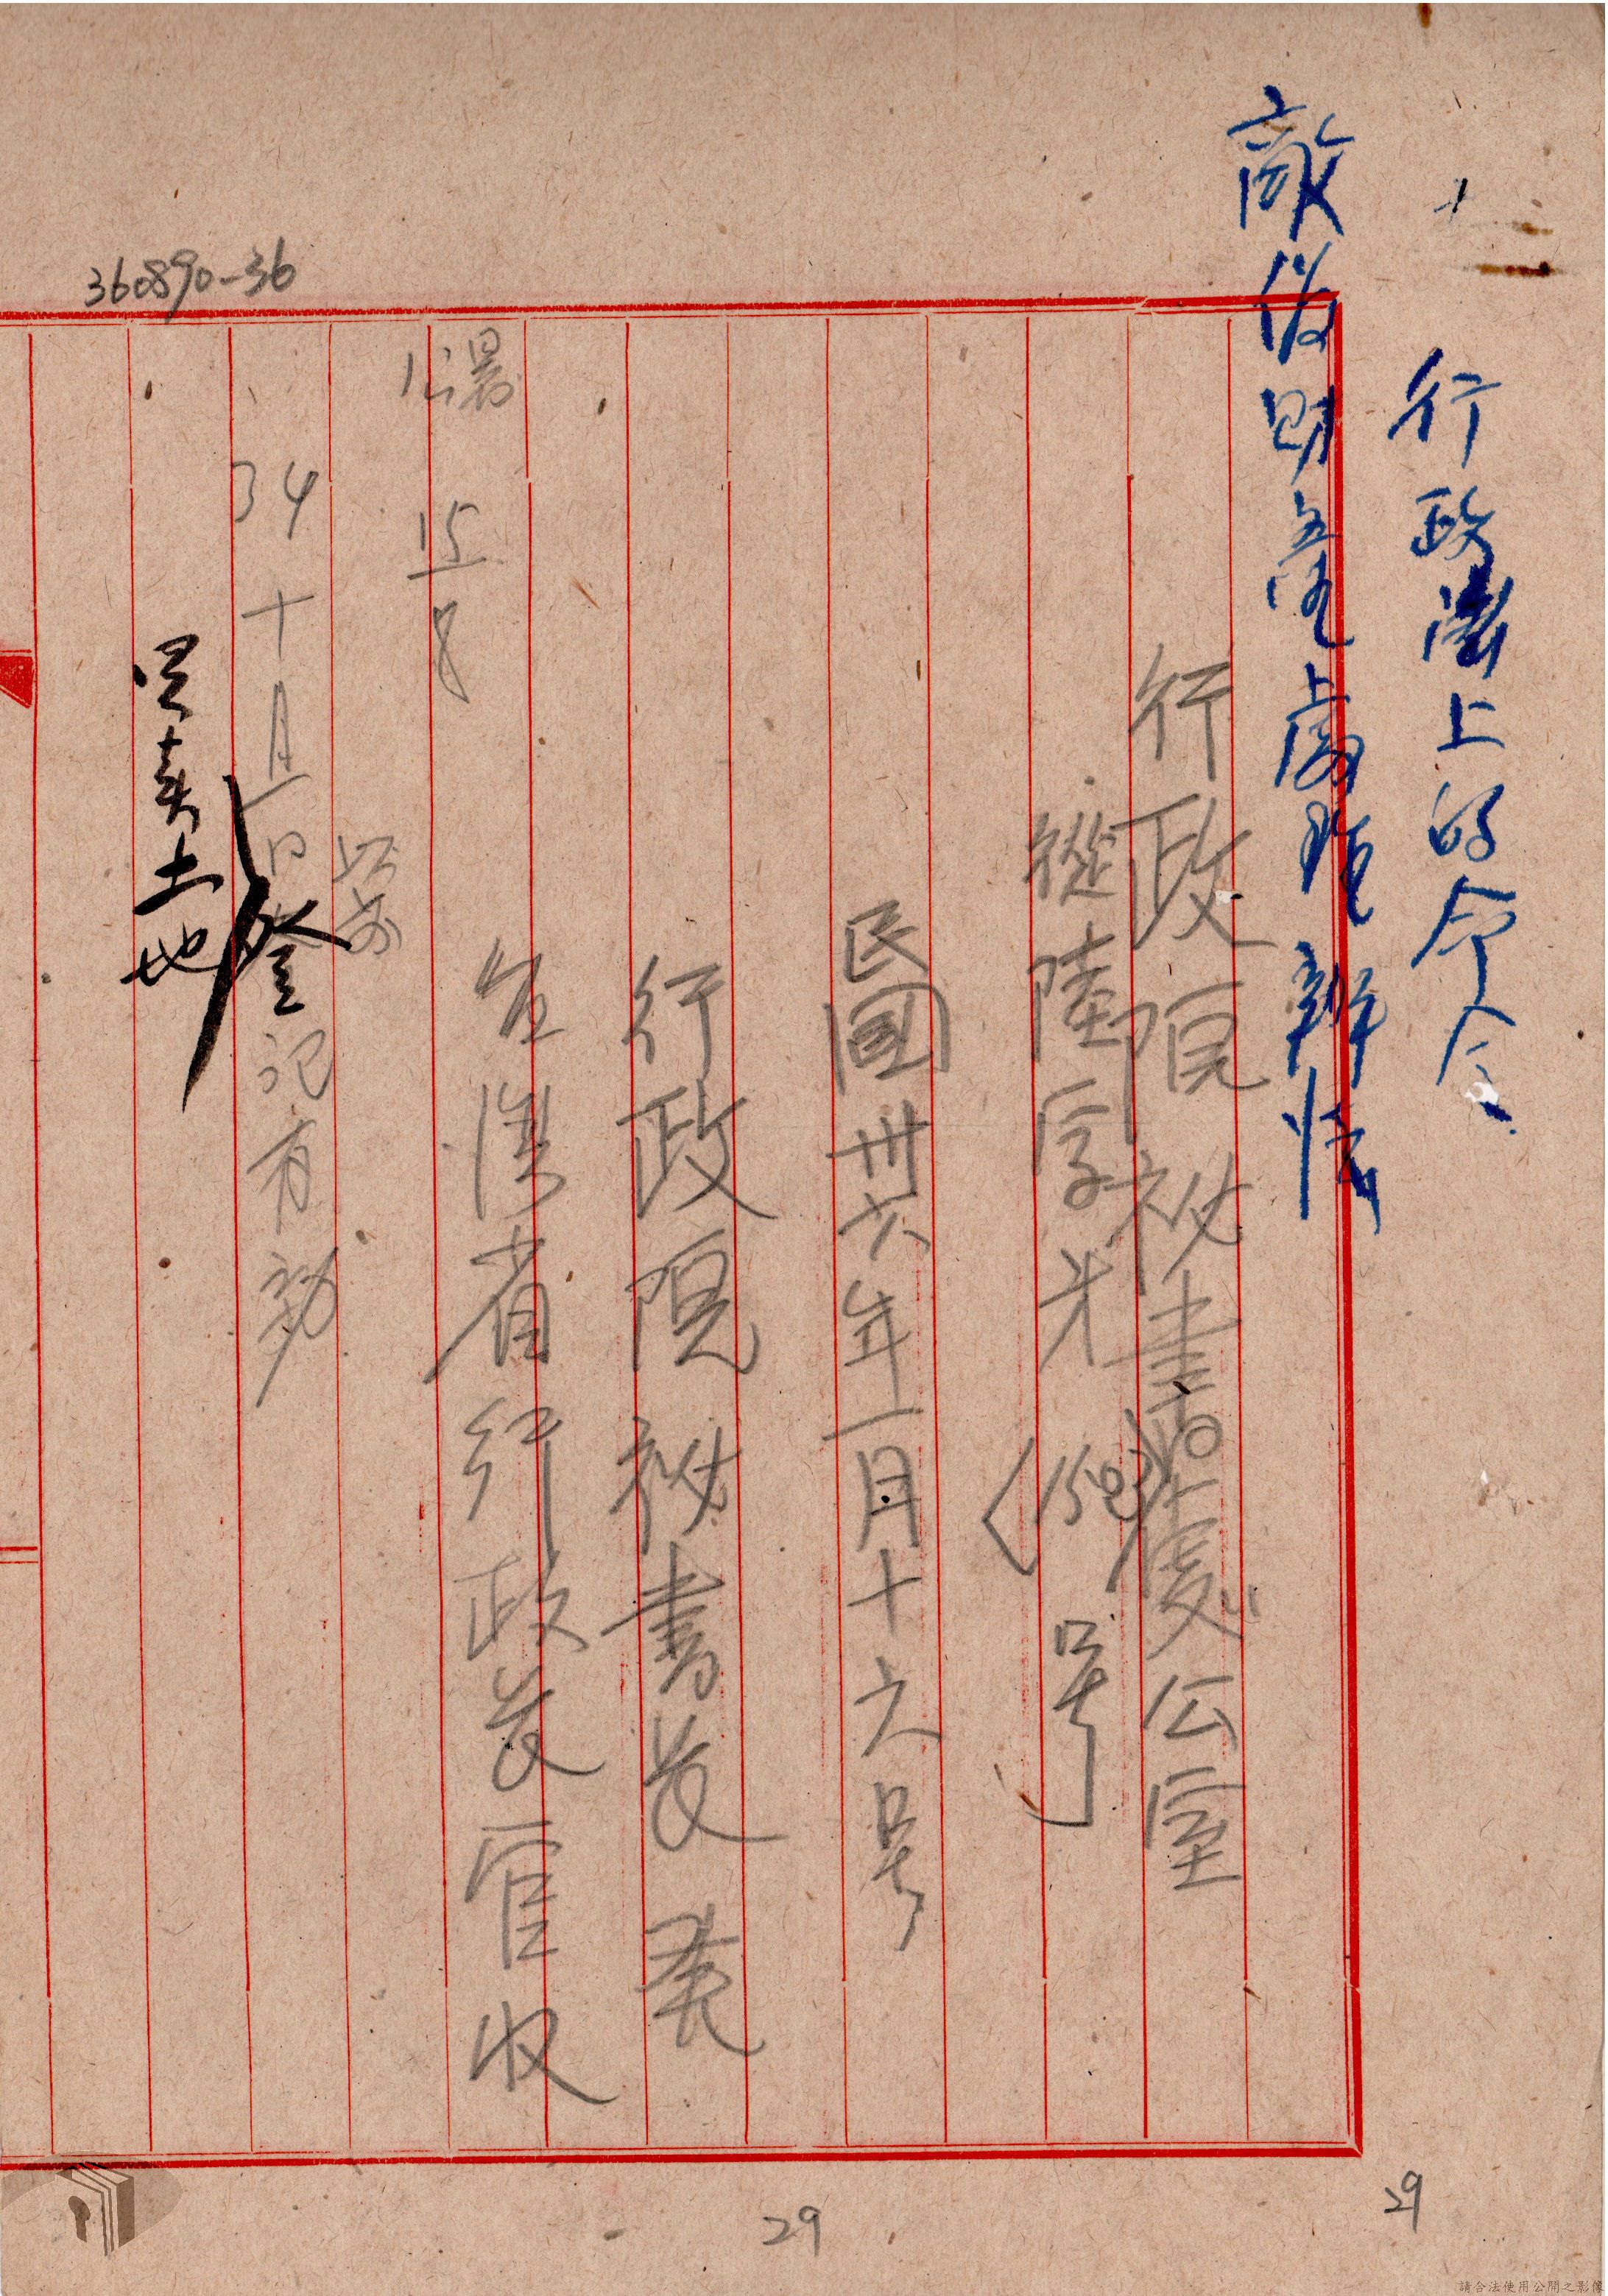 行政法上的命令
敵偽財產處理辦法
行政院祕書處公室
從陸字第
(1503)号
民國卅六年一月十六号
行政院祕書長
台灣省行政長官收
15
8
以前
34十月 日登記有効
買卖土地
360890-36
29
29
請合法使用公開之影像